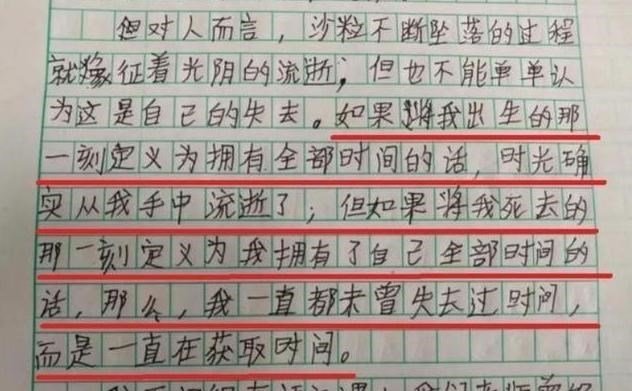 但对人而言，沙粒不断坠落的过程
就像征着光阴的流逝；但也不能单单认
为这是自己的失去。如果将我出生的那
一刻定义为拥有全部时间的话，时光确
实从我手中流逝了；但如果将我死去的
那一刻定义为我拥有了自己全部时间的
话，那么，我一直都未曾失去过时间，
而是一直在获取时间。